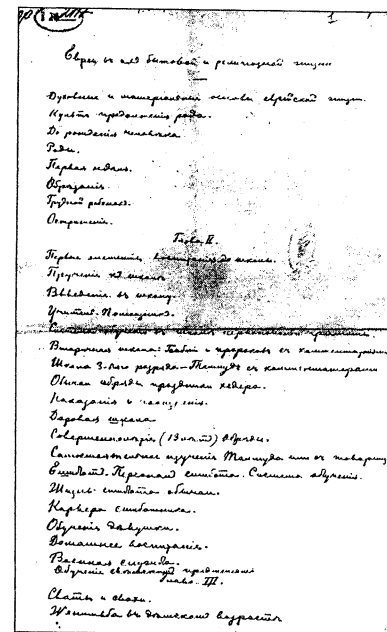 1
Еврей въ его бытовой и религіозной жизни
Духовные и матеріальные основы еврейской жизни.
Культъ продолженія рода.
До рожденія человѣка.
Роды.
Первая недѣля.
Обрѣзаніе.
Грудной ребенокъ.
Остриженіе.
Глава II.
Первые элементы воспитанія до школы.
Пріученіе къ школѣ
Введеніе въ школу.
Учитель. Помощникъ.
школа:                и пророковъ съ комментаріями
Школа 3-яго разряда - Талмудъ съ комментаріями
Обычаи обряды праздники хедера.
Наказанія и поощренія.
Даровая школа
Совершеннолѣтіе (13 лѣтъ) обряды.
Самостоятельное изученіе Талмуда или съ товарищ
Ешиботъ. Персоналъ ешибота. Система обученія.
Жизнь ешибота обычаи.
Карьера ешиботника.
Обученіе дѣвушки.
Домашнее воспитаніе.
Военная служба.
Обученіе
глава III.
Сваты и свахи.
Женитьба въ дѣтскомъ возрастѣ